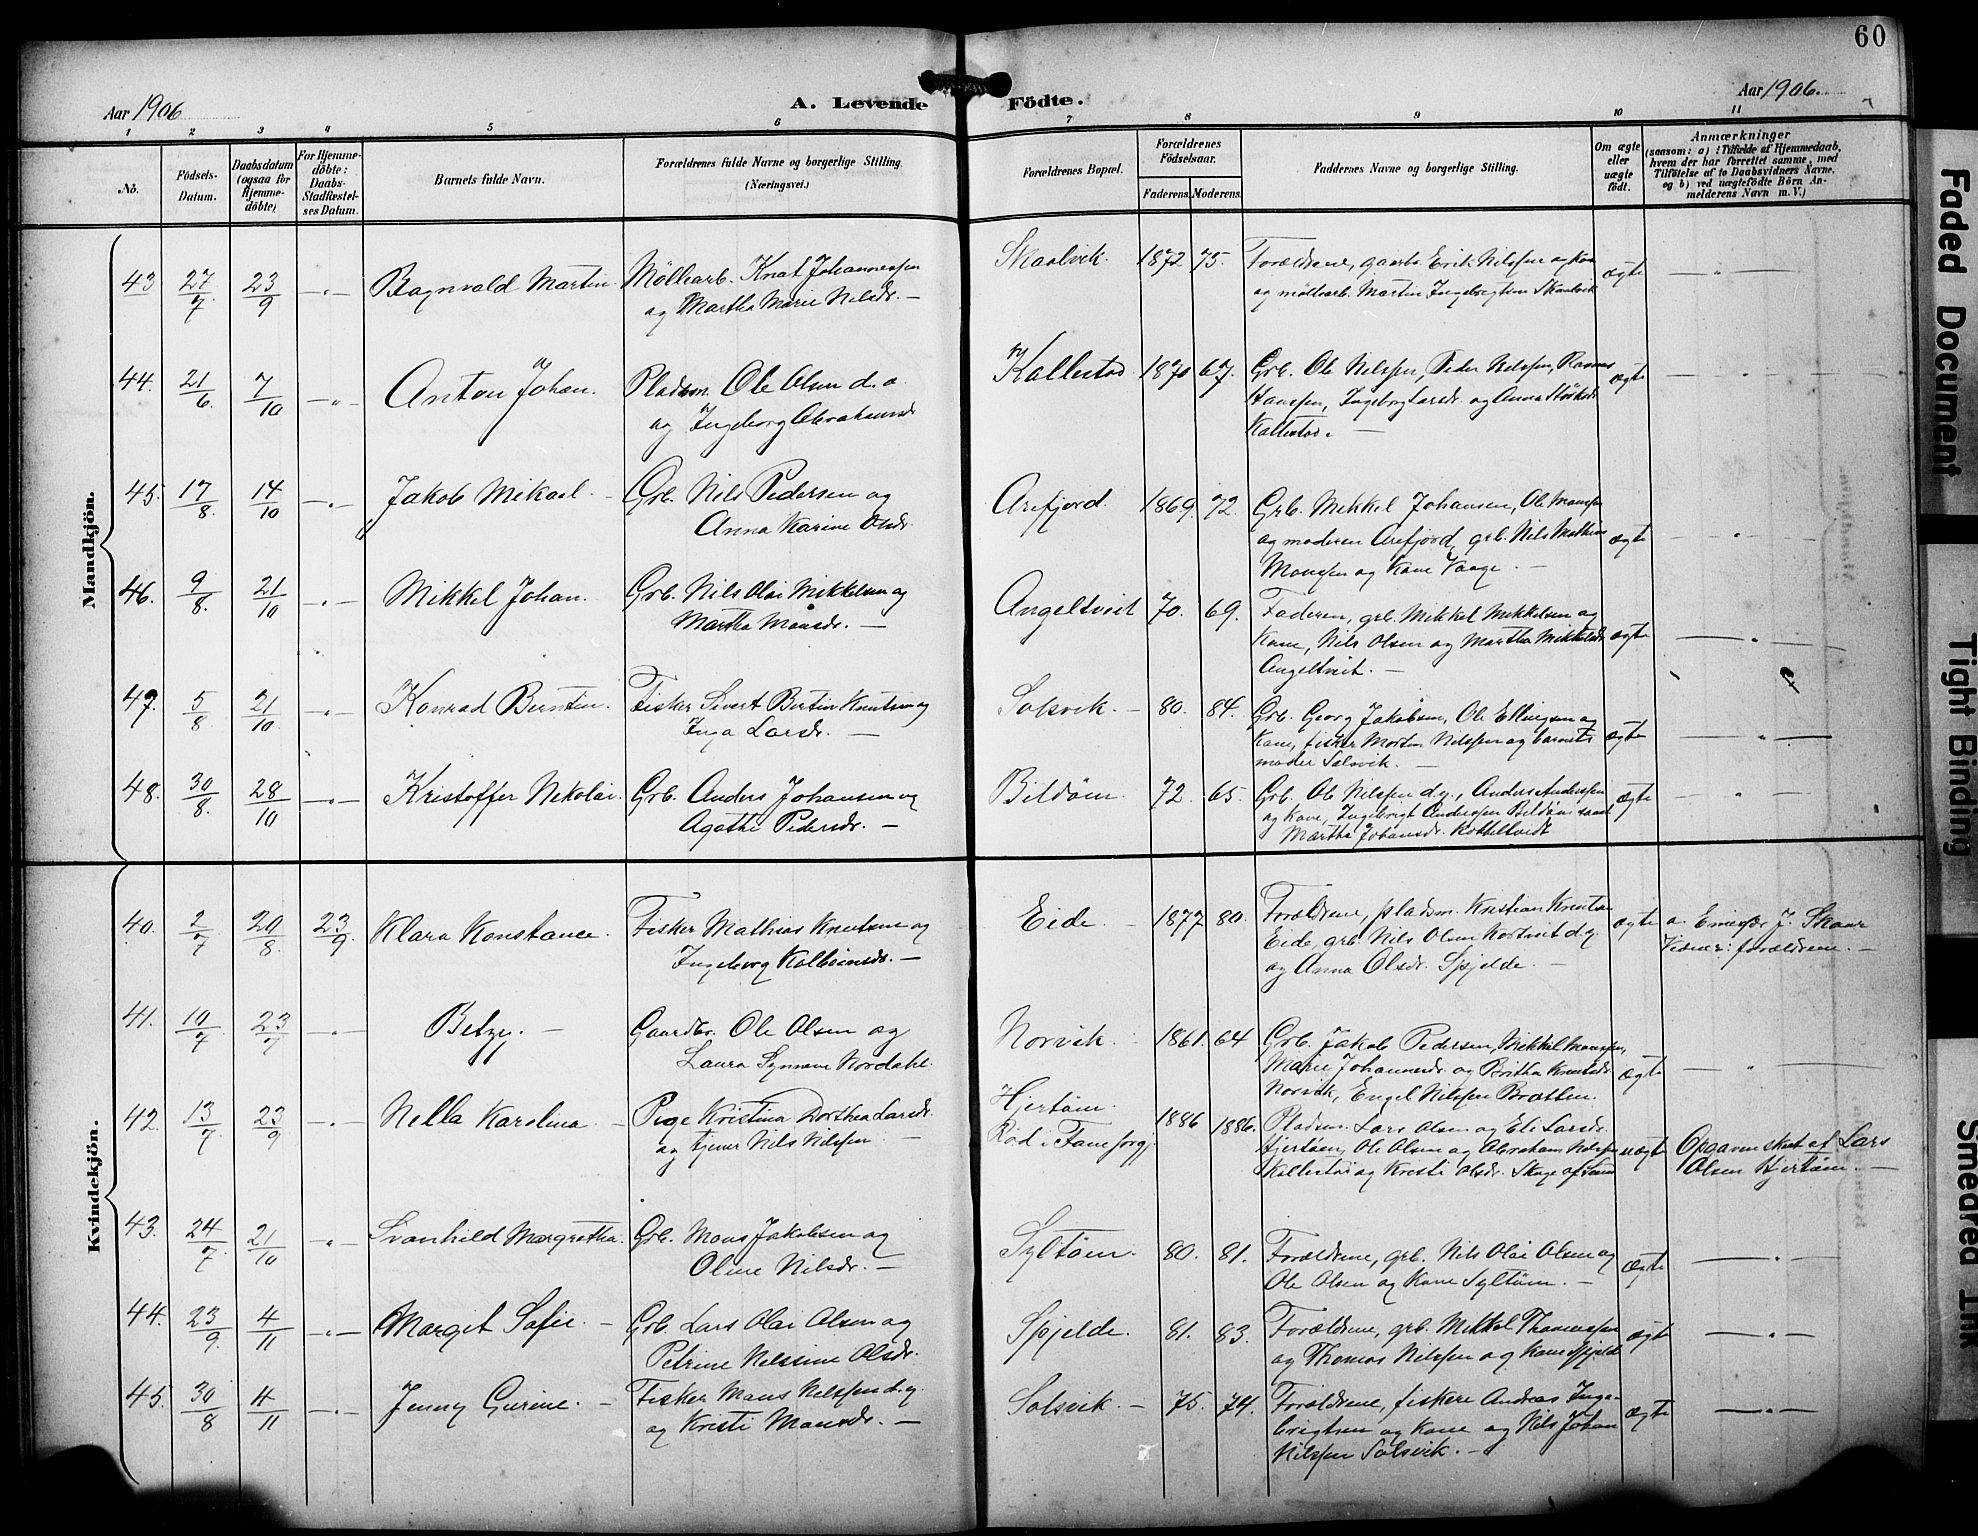 60
Aar 1906
A. Levende Födte.
Aar 1906.
1 2 3 4 5 6 7 8 9 10 11
No.
Födsels-Datum.
Daabsdatum (ogsaa for Hjemme-döbte)
For Hjemme-döbte: Daabs-Stadfæstel-ses Datum.
Barnets fulde Navn.
Forældrenes fulde Navne og borgerlige Stilling. (Næringsvei.)
Forældrenes Bopæl.
Forældrenes Födselsaar.
Faderens. Moderens.
Faddernes Navne og borgerlige Stilling.
Om ægte eller uægte födt.
Anmærkninger
(saasom: a) i Tilfælde af Hjemmedaab, hvem der har forrettet samme, med Tilföielse af to Daabsvidners Navne, og b) ved uægtefödte Börn An-melderens Navn m. V.)
Mandkjön.
43 27/7 23/9 Ragnvald Martin Möllearb. Knut Johannessen
og Martha Marie Nilsdr. —
Skaalvik. 1872 75. Forældrene, gaarbr. Erik Nilssen og Kone
og möllearb. Martin Ingebrigtsen Skaalvik
ægte
44. 21/6 7/10 Anton Johan. Pladsm. Ole Olsen d.a.
og Ingeborg Abrahamsdr
Kallestad 1870 67. Grb. Ole Nilssen, Peder Nilssen, Rasmus
Hanssen, Ingeborg Larsdr. og Anna
Kallestad. —
ægte
45. 17/8. 14/10 Jakob Mikael. Grb. Nils Pedersen og
Anna Karine Olsdr.
Arefjord. 1869. 72. Grb. Mikkel Johansen, Ole Monssen
og moderen Arefjord, grb. Nils Mathias
Monssen og Kone Vaage. —
ægte
46. 9/8. 21/10 Mikkel Johan. Grb. Nils Olai Mikkelsen og
Martha Mónsdr. —
Angeltveit 70. 69. Faderen, grb. Mikkel Mikkelsen og
Kone, Nils Olsen og Martha Mikkelsdr
Angeltveit. —
ægte
47. 5/8. 21/10 Konrad Berntin. Fisker Sivert Bertin Knutsen og
Inga Larsdr. —
Solsvik. — 80. 84. Grb. Georg Jakobsen, Ole Ellingsen og
Kone, fisker Morten Nilssen og barnets
moder Solsvik. —
ægte
48. 30/8. 28/10 Kristoffer Nikolai. Grb. Anders Johansen og
Agathe Pedersdr. —
Bildöen. 72. 65. Grb. Ole Nilssen d.y., Anders Anderssen
og Kone, Ingebrigt Anderssen Bildöen samt
Martha Johansdr. Kobbeltvedt
ægte
Kvindekjön.
40. 2/7 20/8. 23/9. Klara Konstance. Fisker Mathias Knutsen og
Ingeborg Kolbeinsdr. —
Eide. 1877 80. Forældrene, pladsm. Kristian Knutsen
Eide, grb. Nils Olsen Kortveit d.y.
og Anna Olsdr. Spjelde. —
ægte a. J. Skaar
Vidner: forældrene. —
41. 10/7 23/7 Betzy. — Gaardbr. Ole Olsen og
Laura Synneve Nordahl.
Norvik. 1861. 64 Grb. Jakob Pedersen, Mikkel Monssen,
Marie Johannesdr. og Britha Knutsdr.
Norvik, Engel Nilssen Bratten.
ægte
42. 13/7 23/9 Nella Karolina — Pige Kristina Dorthea Larsdr.
og tjener Nils Nilssen —
Hjertöen.
Röd i Fane sogn. 1886 1886. Pladsm. Lars Olsen og Eli Larsdr.
Hjertöen, Ole Olsen og Abraham Nilssen
Kallestad og Kristi Olsdr. Skage af Sund
uægte Opgaven skeet af Lars
Olsen Hjertöen. —
43. 24/7. 21/10 Svanhild Margretha. Grb. Mons Jakobsen og
Oline Nilsdr. —
Syltöen. 80. 81. Forældrene, grb. Nils Olai Olsen og
Ole Olsen og Kone Syltöen. —
ægte
44. 23/9. 4/11 Margit Sofie. — Grb. Lars Olai Olsen og
Petrine Nilssine Olsdr.
Spjelde. 81. 83. Forældrene, grb. Mikkel Thomassen
og Thomas Nilssen og Kone Spjelde
ægte
45. 30/8 4/11 Jenny Gurine. — Fisker Mons Nilssen d.y.
og Kristi Monsdr. —
Solsvik. — 75. 74. Forældrene, fiskere Andreas Inge-
brigtsen og Kone og Nils Johan
Nilssen Solsvik. —
ægte
Faded Document
Tight Binding
Smeared Ink